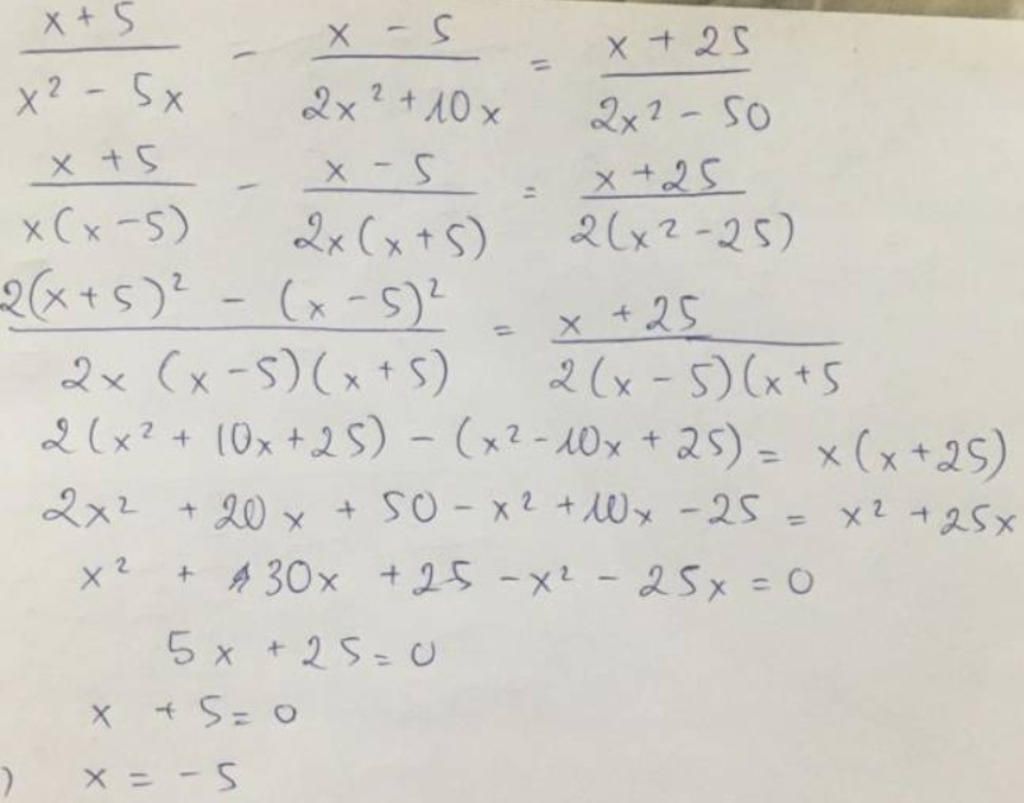 x + 5 / x² - 5x - x - 5 / 2x² + 10x = x + 25 / 2x² - 50
x + 5 / x(x - 5) - x - 5 / 2x(x + 5) = x + 25 / 2(x² - 25)
2(x + 5)² - (x - 5)² / 2x (x - 5)(x + 5) = x + 25 / 2(x - 5)(x + 5
2(x² + 10x + 25) - (x² - 10x + 25) = x(x + 25)
2x² + 20x + 50 - x² + 10x - 25 = x² + 25x
x² + 30x + 25 - x² - 25x = 0
5x + 25 = 0
x + 5 = 0
) x = -5